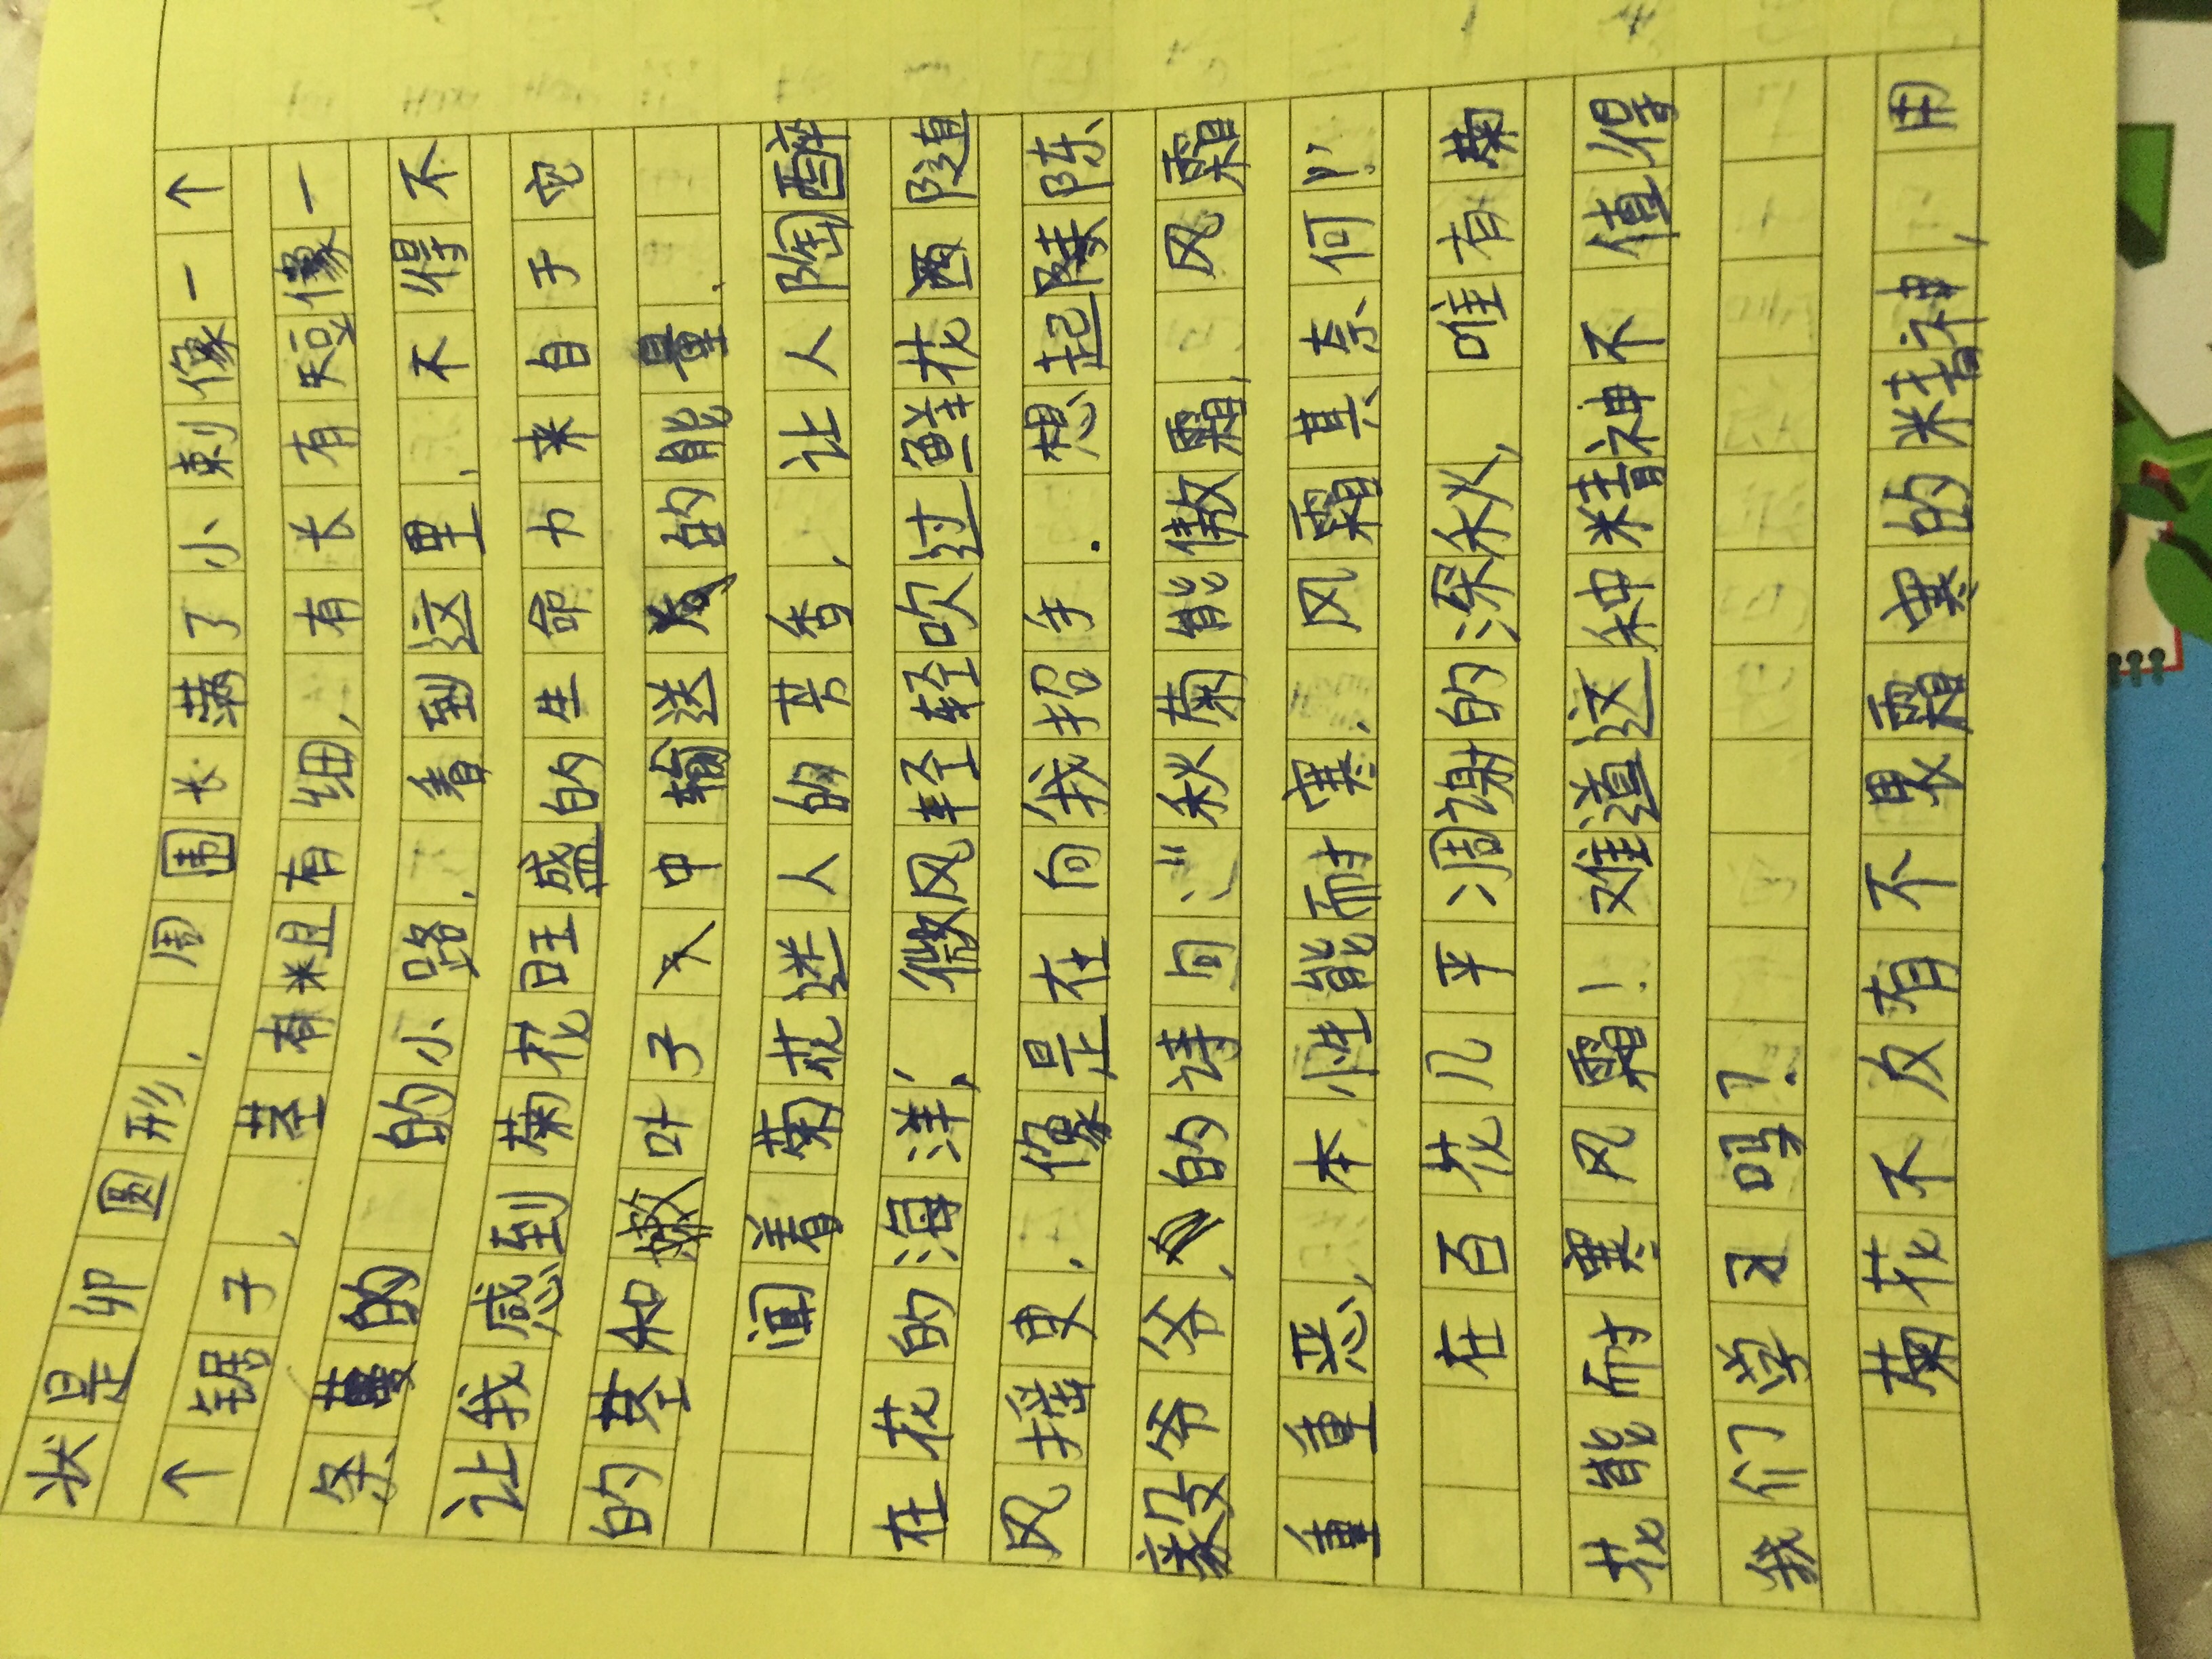 状是卵圆形.周围长满了小刺像一个
个锯子,茎有粗有细,有长有短像一
条蔓的的小路.看到这里.不得不
让我感到菊花旺盛的生命力来自于它
的茎和嫩叶子中输送的能量.
闻着菊花迷人的芳香,让人陶醉
在花的海洋,微风轻轻吹过鲜花随
风摇曳.像是在向我招手.想起陈
毅爷爷的诗句:"秋菊能傲霜,风霜
重重恶,本性能耐寒.风霜其奈何?"
在百花几乎凋谢的深秋,唯有菊
花能耐寒风霜!难道这种精神不值得
我们学习吗?
菊花不仅有不畏霜寒的精神,用